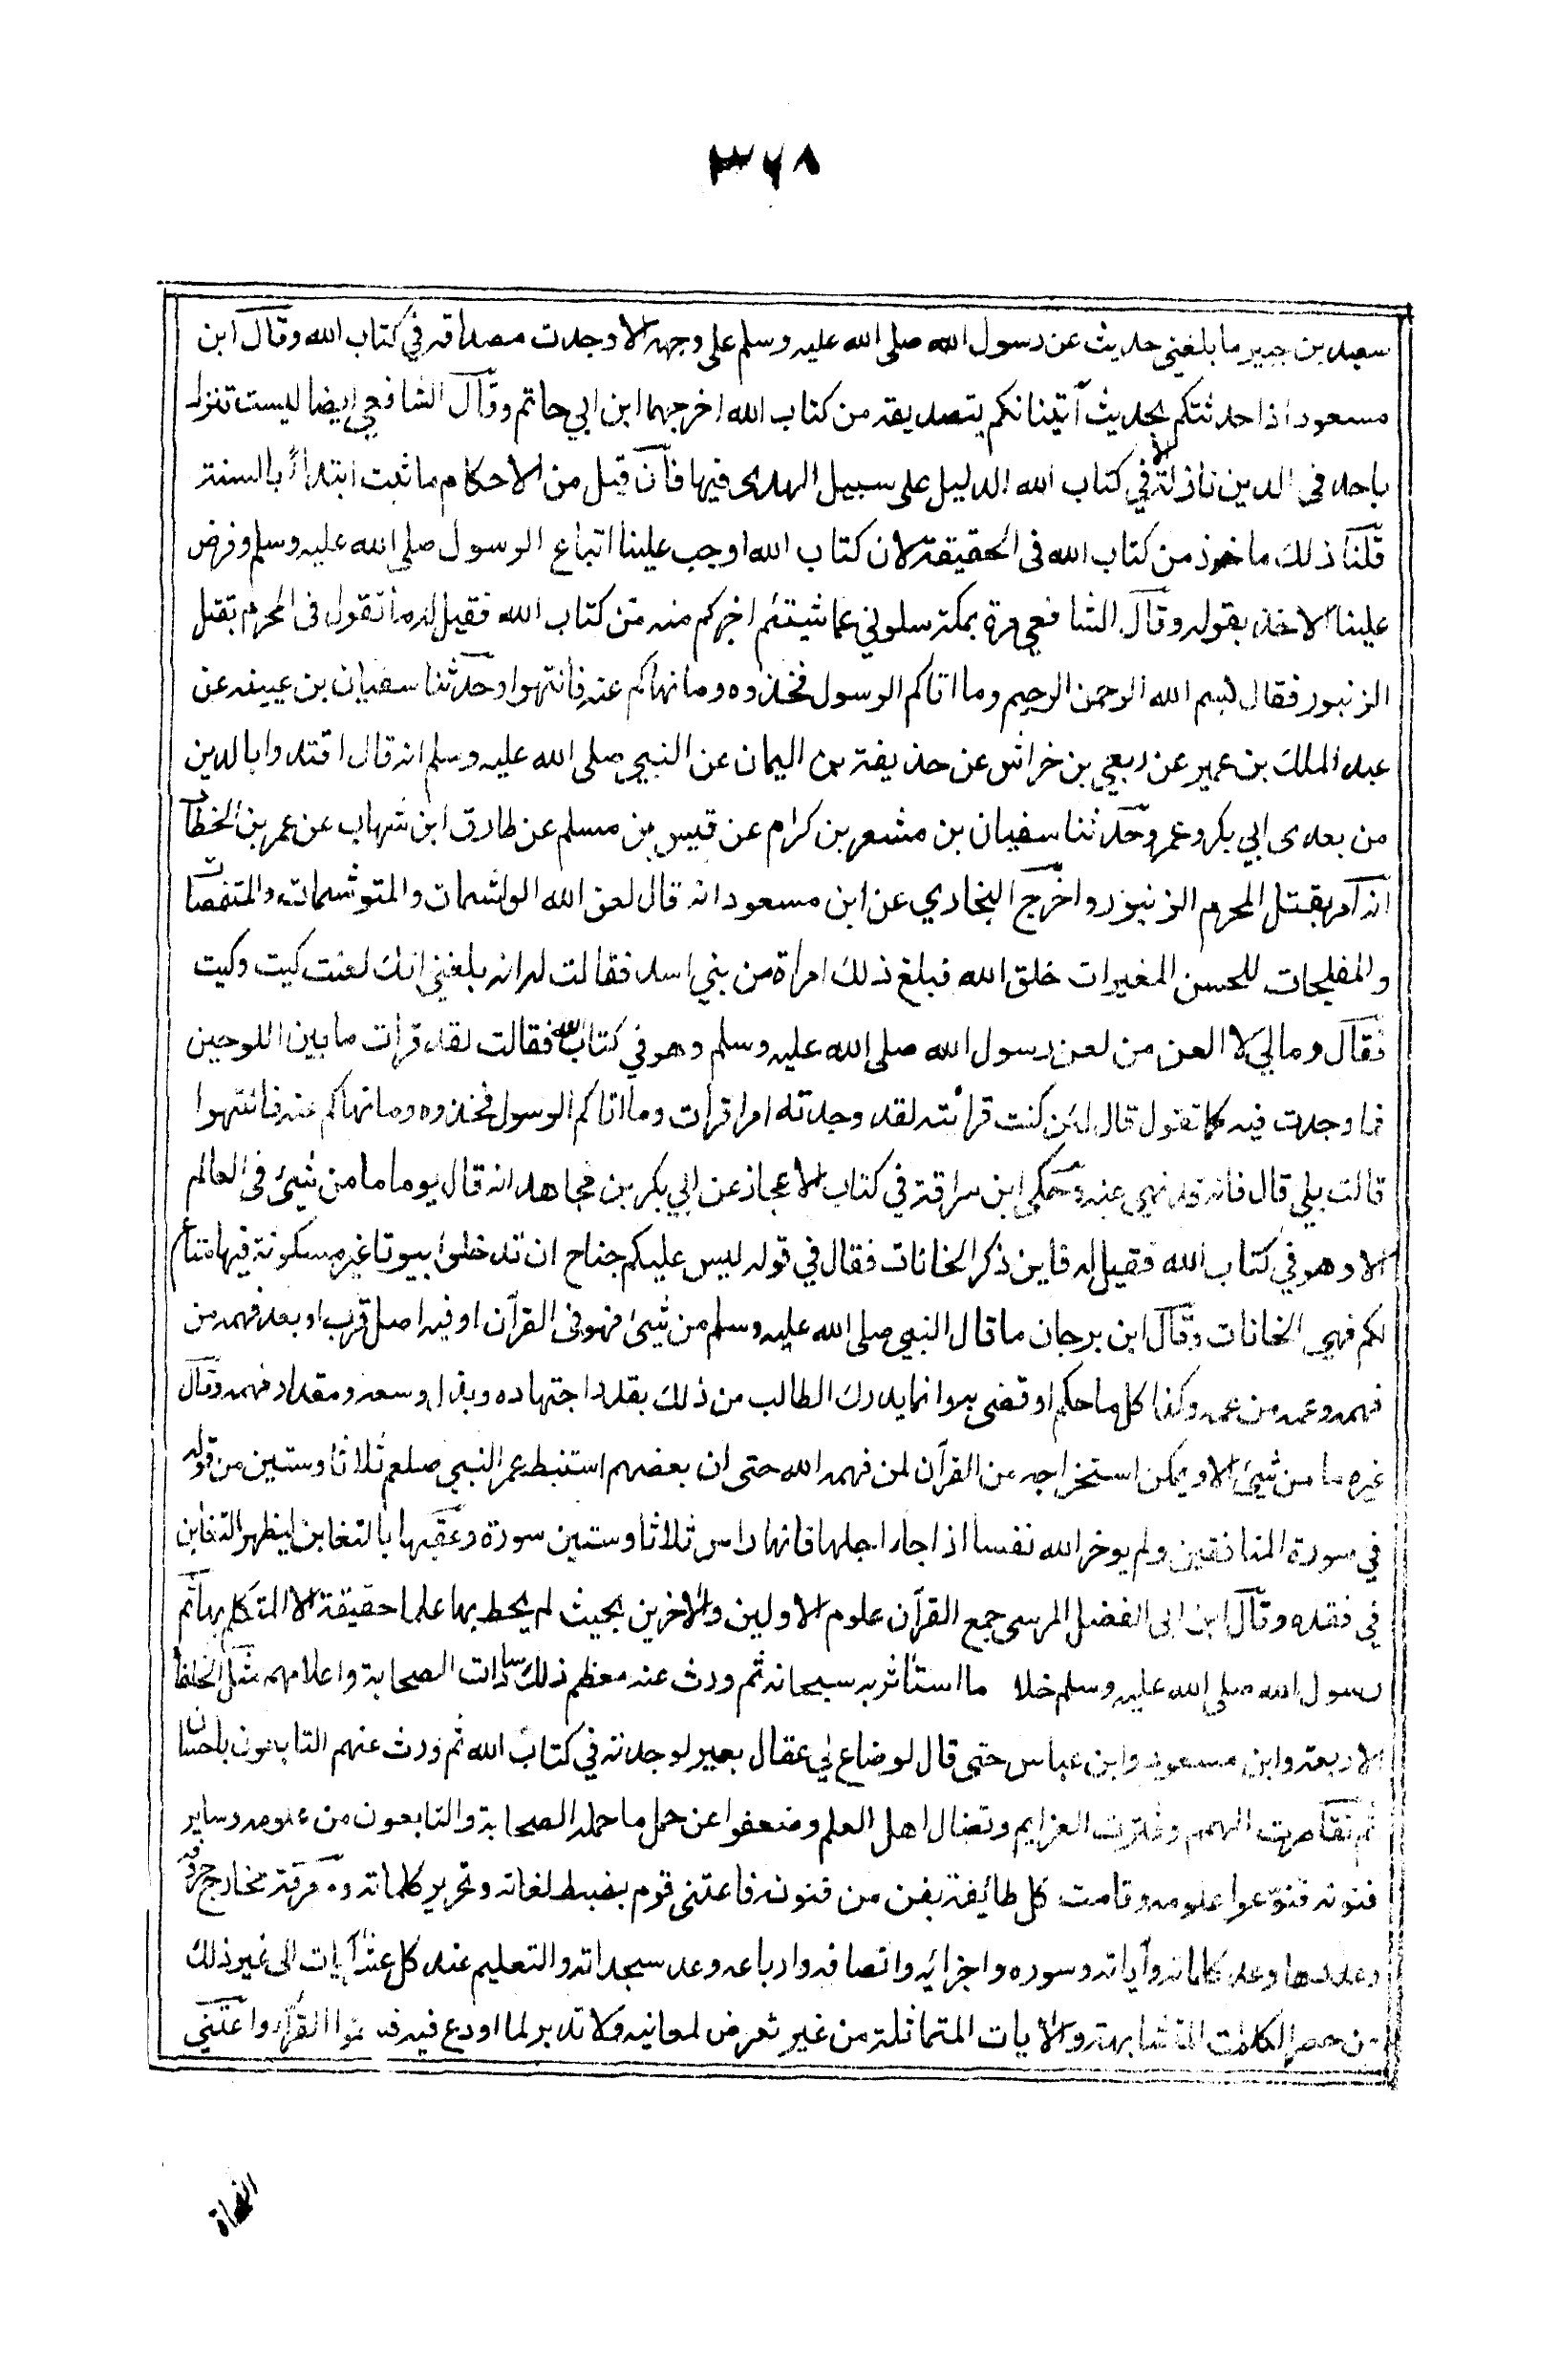 ٣٦٨
سعيد بن جبير ما بلغني حديث عن رسول الله صلى الله عليه وسلم على وجهه الا وجدت مصداقه في كتاب الله وقال ابن
مسعود اذا حدثتكم بحديث آتيتانكم بتصديقه من كتاب الله اخرجهما ابن ابي حاتم وقال الشافعي ايضا ليست تنزل
باحد في الدين نازلة الا في كتاب الله الدليل على سبيل الهدى فيها فان قيل من الاحكام ما ثبت ابتداأ بالسنة
قلنا ذلك ماخوذ من كتاب الله في الحقيقة لان كتاب الله اوجب علينا اتباع الرسول صلى الله عليه وسلم وفرض
علينا الاخذ بقوله وقال الشافعي مرة بمكة سلوني عما شيتم اخبركم منه من كتاب الله فقيل له ما تقول في المحرم يقتل
الزنبور فقال بسم الله الرحمن الرحيم وما اتاكم الرسول فخذوه وما نهاكم عنه فانتهوا وحدثنا سفيان بن عيينه عن
عبد الملك بن عمير عن ربعي بن خراش عن حذيفة بن اليمان عن النبي صلى الله عليه وسلم انه قال اقتدوا بالدين
من بعدى ابي بكر وعمر وحدثنا سفيان بن مشعر بن كرام عن قيس بن مسلم عن طارق ابن شهاب عن عمر بن الخطاب
انه امر بقتل المحرم الزنبور واخرج البخاري عن ابن مسعود انه قال لعن الله الواشمات والمتوشمات والمتنمصات
والمفلجات للحسن المغيرات خلق الله فبلغ ذلك امراة من بني اسد فقالت له انه بلغني انك لعنت كيت وكيت
فقال ومالي لا العن من لعن رسول الله صلى الله عليه وسلم وهو في كتاب الله فقالت لقد قرات ما بين اللوحين
فما وجدت فيه كما تقول قال لئن كنت قرائته لقد وجدته اما قرات وما اتاكم الرسول فخذوه وما نهاكم عنه فانتهوا
قالت بلي قال فانه قد نهي عنه وحكى ابن سراقة في كتاب الاعجاز عن ابي بكر بن مجاهد انه قال يوما ما من شيئ في العالم
الا وهو في كتاب الله فقيل له فاين ذكر الخانات فقال في قوله ليس عليكم جناح ان تدخلوا بيوتا غير مسكونة فيها متاع
لكم فهي الخانات وقال ابن برجان ما قال النبي صلى الله عليه وسلم من شيئ فهو في القرآن او فيه اصله قرب او بعد فهمه من
فهمه وعمه من عمه وكذا كل ما حكم او قضى به وانما يدرك الطالب من ذلك بقدر اجتهاده وبذل وسعه ومقدار فهمه وقال
غيره ما من شيئ الا ويمكن استخراجه من القرآن لمن فهمه الله حتى ان بعضهم استنبط عمر النبي صلعم ثلاثا وستين من قوله
في سورة المنافقين ولم يوخر الله نفسا اذا جاء اجلها فانها راس ثلاثا وستين سورة وعقبها بالتغابن ليظهر التغابن
في فقده وقال ابن ابي الفضل المرسى جمع القرآن علوم الاولين والاخرين بحيث لم يحط بها علما حقيقة الا المتكلم بها ثم
رسول الله صلى الله عليه وسلم خلا ما استأثر به سبحانه ثم ورث عنه معظم ذلك سادات الصحابة واعلامهم مثل الخلفا
الاربعة وابن مسعود وابن عباس حتى قال لو ضاع لي عقال بعير لوجدته في كتاب الله ثم ورث عنهم التابعون باحسان
ثم تقاصرت الهمم وفترت العزايم وتضال اهل العلم وضعفوا عن حمل ما حمله الصحابة والتابعون من علومه وساير
فنونه فنوّعوا علومه وقامت كل طائيفة بفن من فنونه فاعتنى قوم بضبط لغاته وتحرير كلماته ومعرفة مخارج حروفه
وعددها وعد كلماته وآياته وسوره واجزائه وانصافه وارباعه وعدد سجداته والتعليم عند كل عشر آيات الى غير ذلك
من حصر الكلمات المتشابهة والايات المتماثلة من غير تعرض لمعانيه ولا تدبر لما اودع فيه فسموا القراء واعتنى
النحاة